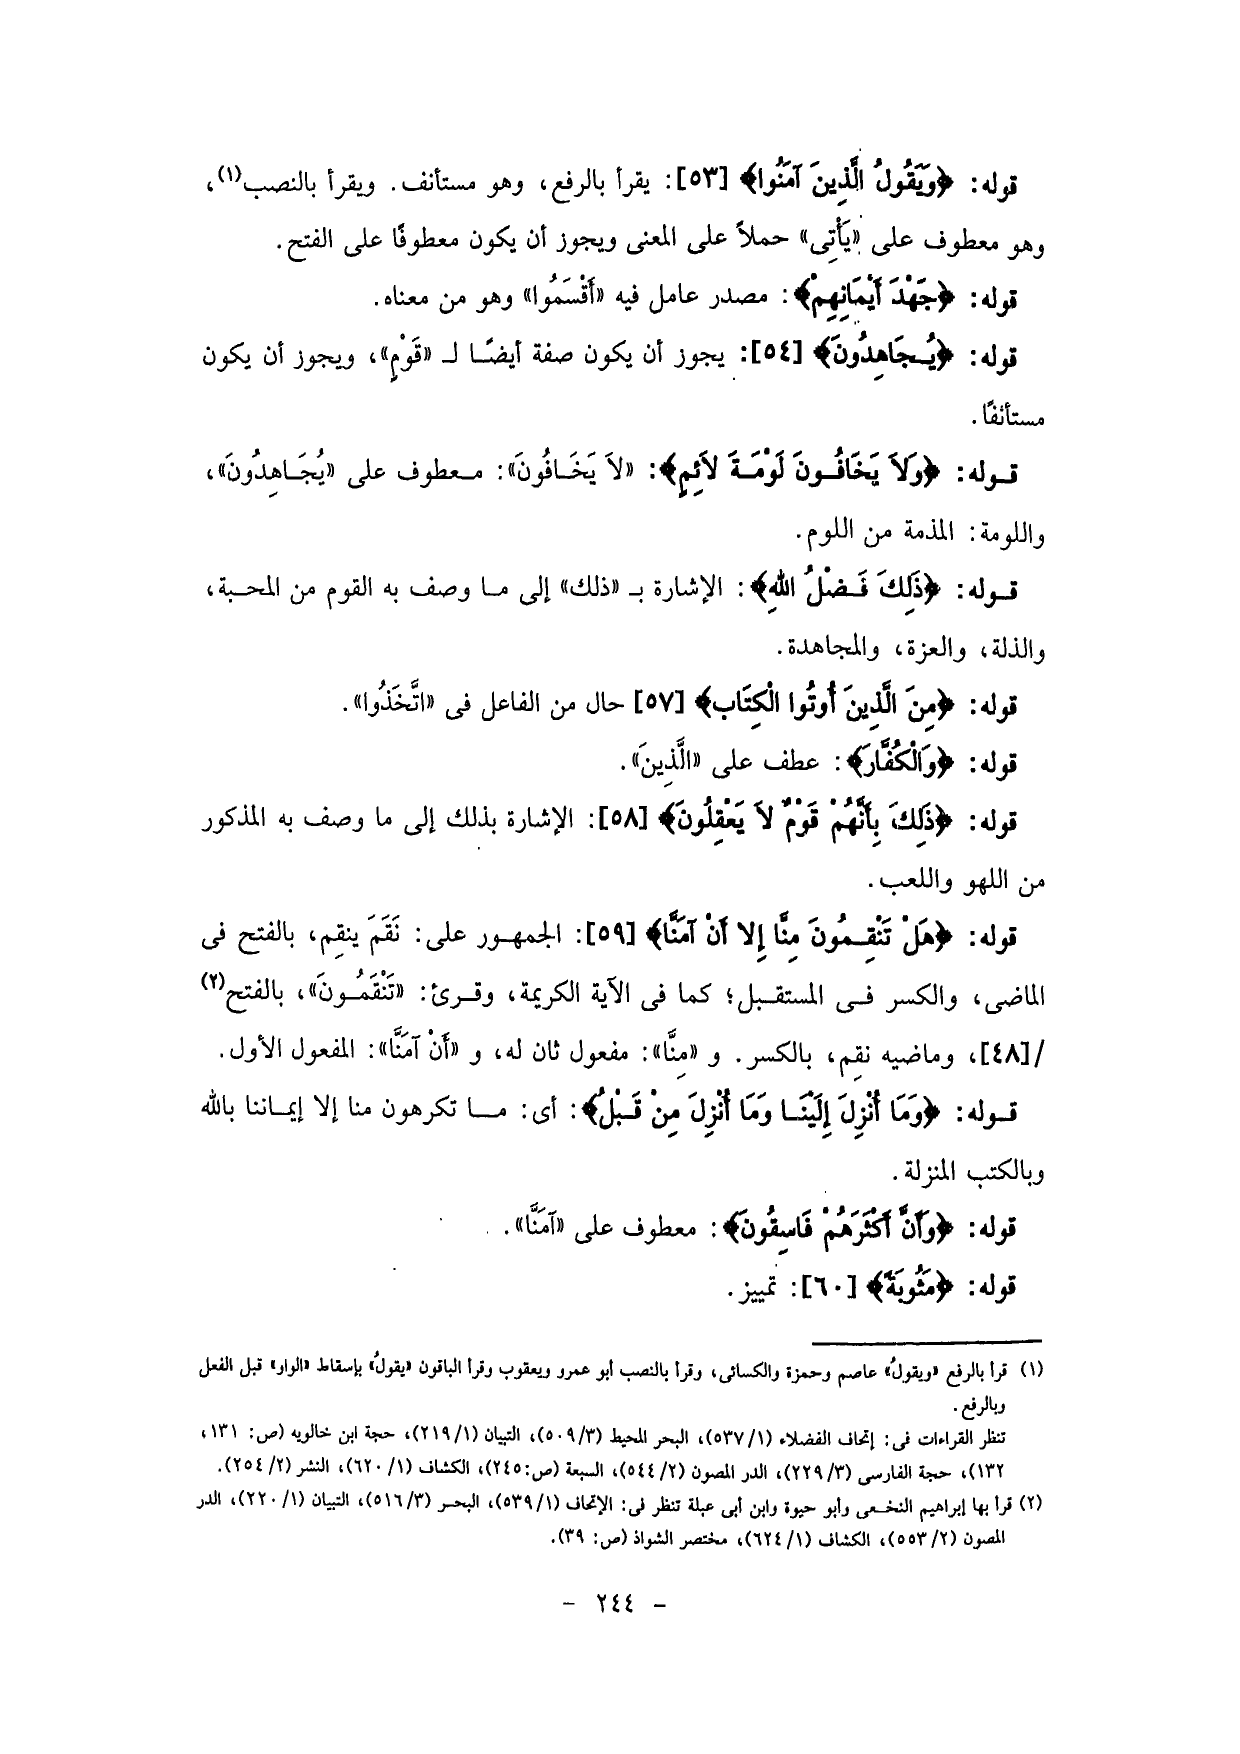 قوله: ﴿وَيَقُولُ الَّذِينَ آمَنُوا﴾ [٥٣]: يقرأ بالرفع، وهو مستأنف. ويقرأ بالنصب(١)،
وهو معطوف على «يَأْتِى» حملاً على المعنى ويجوز أن يكون معطوفًا على الفتح.
قوله: ﴿جَهْدَ أَيْمَانِهِمْ﴾: مصدر عامل فيه «أَقْسَمُوا» وهو من معناه.
قوله: ﴿يُجَاهِدُونَ﴾ [٥٤]: يجوز أن يكون صفة أيضًا لـ «قَوْمٍ»، ويجوز أن يكون
مستأنفًا.
قوله: ﴿وَلاَ يَخَافُونَ لَوْمَةَ لاَئِمٍ﴾: «لاَ يَخَافُونَ»: معطوف على «يُجَاهِدُونَ»،
واللومة: المذمة من اللوم.
قوله: ﴿ذَلِكَ فَضْلُ اللهِ﴾: الإشارة بـ «ذلك» إلى ما وصف به القوم من المحبة،
والذلة، والعزة، والمجاهدة.
قوله: ﴿مِنَ الَّذِينَ أُوتُوا الْكِتَابِ﴾ [٥٧] حال من الفاعل فى «اتَّخَذُوا».
قوله: ﴿وَالْكُفَّارَ﴾: عطف على «الَّذِينَ».
قوله: ﴿ذَلِكَ بِأَنَّهُمْ قَوْمٌ لاَ يَعْقِلُونَ﴾ [٥٨]: الإشارة بذلك إلى ما وصف به المذكور
من اللهو واللعب.
قوله: ﴿هَلْ تَنْقِمُونَ مِنَّا إِلا أَنْ آمَنَّا﴾ [٥٩]: الجمهور على: نَقَمَ ينقِم، بالفتح فى
الماضى، والكسر فى المستقبل؛ كما فى الآية الكريمة، وقرئ: «تَنْقَمُونَ»، بالفتح(٢)
/[٤٨]، وماضيه نقِم، بالكسر. و «مِنَّا»: مفعول ثان له، و «أَنْ آمَنَّا»: المفعول الأول.
قوله: ﴿وَمَا أُنْزِلَ إِلَيْنَا وَمَا أُنْزِلَ مِنْ قَبْلُ﴾: أى: ما تكرهون منا إلا إيماننا بالله
وبالكتب المنزلة.
قوله: ﴿وَأَنَّ أَكْثَرَهُمْ فَاسِقُونَ﴾: معطوف على «آمَنَّا».
قوله: ﴿مَثُوبَةً﴾ [٦٠]: تمييز.
(١) قرأ بالرفع «ويقولُ» عاصم وحمزة والكسائى، وقرأ بالنصب أبو عمرو ويعقوب وقرأ الباقون «يقولُ» بإسقاط «الواو» قبل الفعل
وبالرفع.
تنظر القراءات فى: إتحاف الفضلاء (١/ ٥٣٧)، البحر المحيط (٣/ ٥٠٩)، التبيان (١/ ٢١٩)، حجة ابن خالويه (ص: ١٣١،
١٣٢)، حجة الفارسى (٣/ ٢٢٩)، الدر المصون (٢/ ٥٤٤)، السبعة (ص: ٢٤٥)، الكشاف (١/ ٦٢٠)، النشر (٢/ ٢٥٤).
(٢) قرأ بها إبراهيم النخعى وأبو حيوة وابن أبى عبلة تنظر فى: الإتحاف (١/ ٥٣٩)، البحر (٣/ ٥١٦)، التبيان (١/ ٢٢٠)، الدر
المصون (٢/ ٥٥٣)، الكشاف (١/ ٦٢٤)، مختصر الشواذ (ص: ٣٩).
- ٢٤٤ -